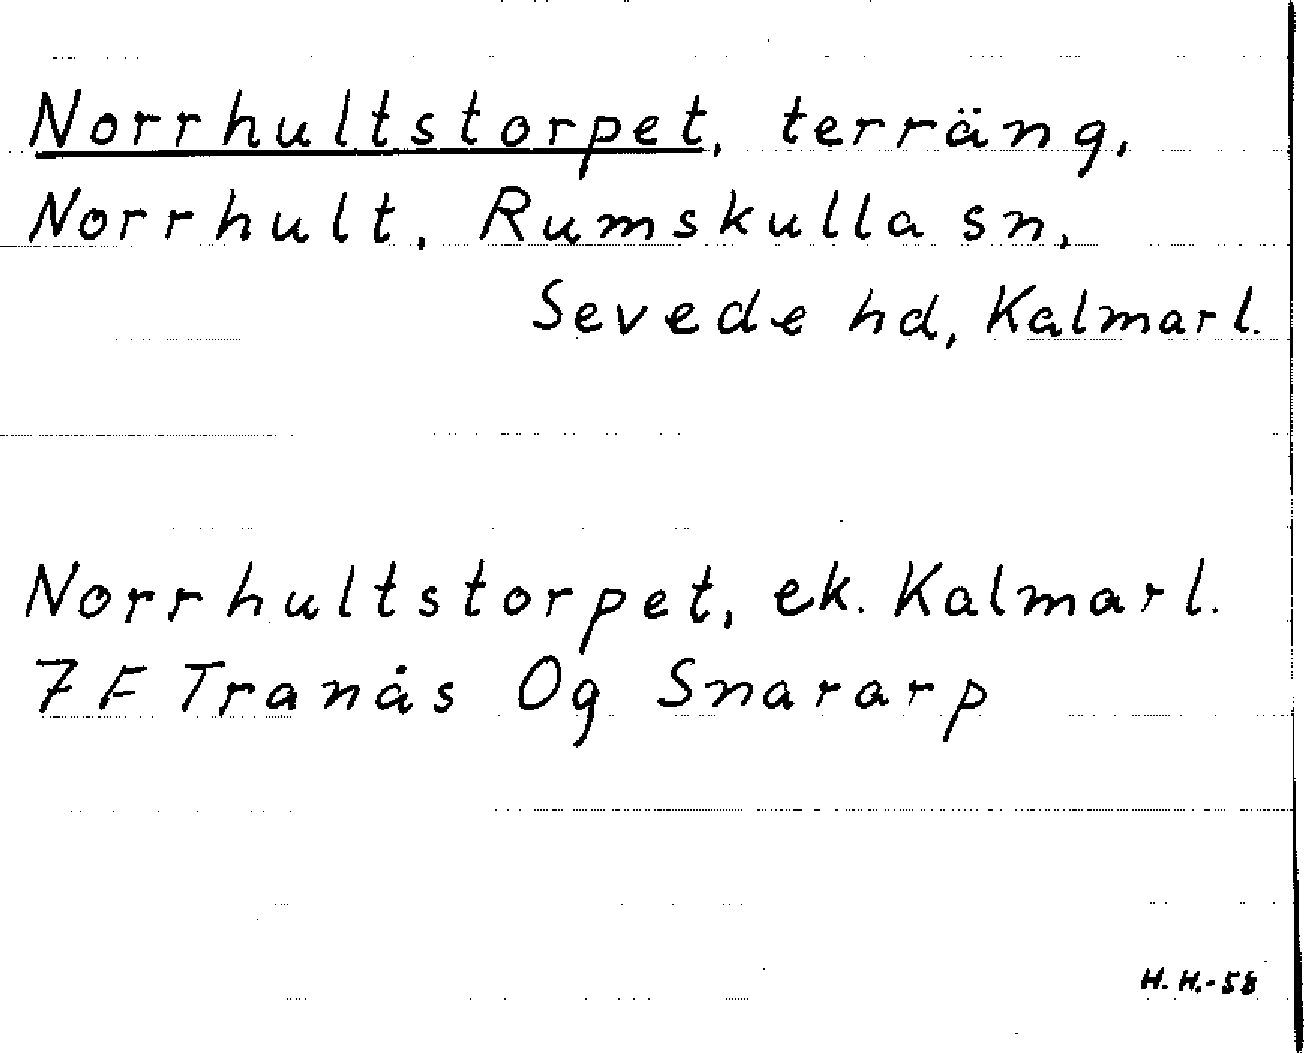 Norrhultstorpet, terräng,
Norrhult, Rumskulla sn,
Sevede hd, Kalmar l.
Norrhultstorpet, ek. Kalmar l.
7 F Tranås Og Snararp
H. H.-58